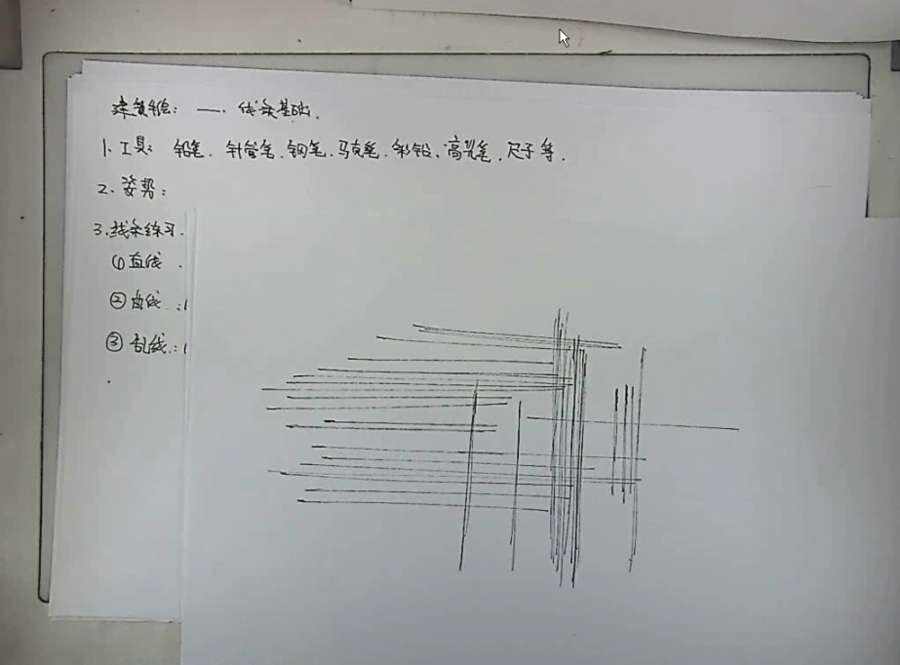 建筑手绘：一. 线条基础.
1. 工具：铅笔. 针管笔. 钢笔. 马克笔. 彩铅. 高光笔. 尺子等.
2. 姿势：
3. 线条练习.
① 直线.
② 曲线.：
③ 乱线.：